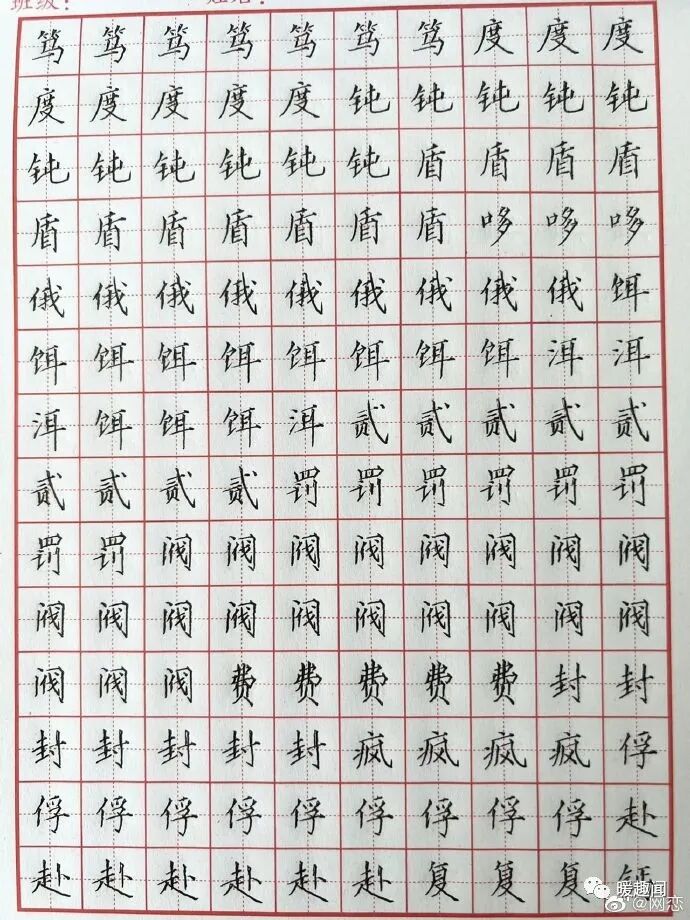 班级： 姓名：
笃笃笃笃笃笃笃度度度
度度度度度钝钝钝钝钝
钝钝钝钝钝钝盾盾盾盾
盾盾盾盾盾盾盾哆哆哆
俄俄俄俄俄俄俄俄俄饵
饵饵饵饵饵饵饵饵洱洱
洱饵饵饵洱贰贰贰贰贰
贰贰贰贰罚罚罚罚罚罚
罚罚阀阀阀阀阀阀阀阀
阀阀阀阀阀阀阀阀阀阀
阀阀阀费费费费费封封
封封封封封疯疯疯疯俘
俘俘俘俘俘俘俘俘俘赴
赴赴赴赴赴赴复复复
暖趣闻
@网恋